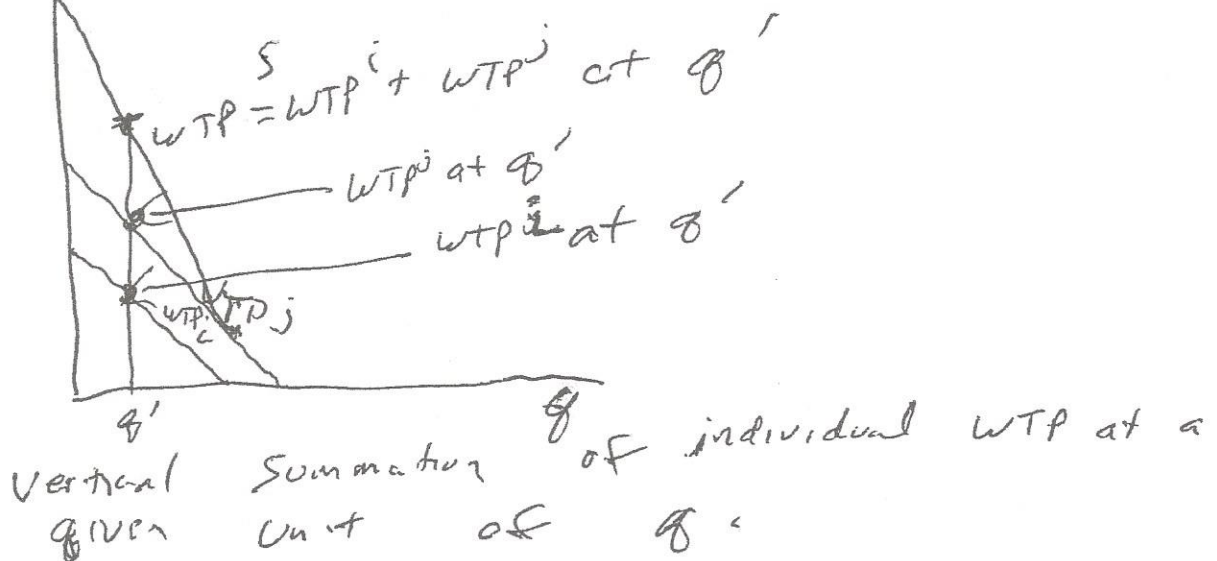 WTP^S = WTP^i + WTP^j at q'
WTP^j at q'
WTP^i at q'
WTP_i
WTP_j
q'
q
Vertical Summation of individual WTP at a
given unit of q.